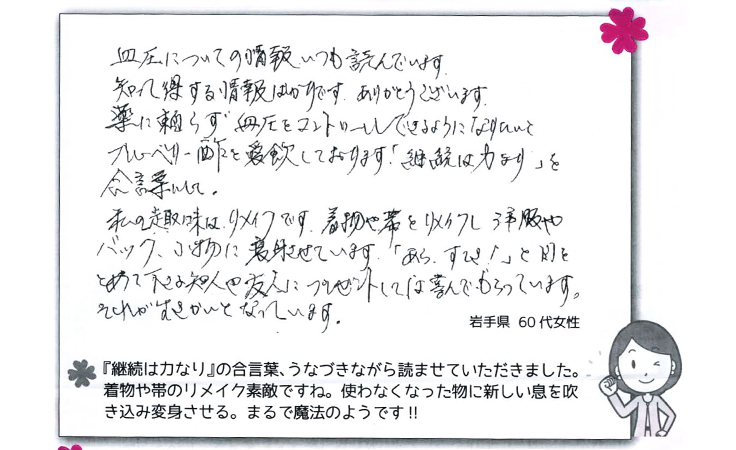 血圧についての情報、いつも読んでいます。
知って得する情報ばかりです。ありがとうございます。
薬に頼らず血圧をコントロールできるようになりたいと
ブルーベリー酢を愛飲しております。「継続は力なり」を
合言葉にして。
私の趣味はリメイクです。着物や帯をリメイクし洋服や
バック、小物に変身させています。「あら、すてき!」と目を
とめて下さる知人や友人にプレゼントしては喜んでもらっています。
それが生きがいとなっています。
岩手県 60代女性
『継続は力なり』の合言葉、うなづきながら読ませていただきました。
着物や帯のリメイク素敵ですね。使わなくなった物に新しい息を吹
き込み変身させる。まるで魔法のようです!!